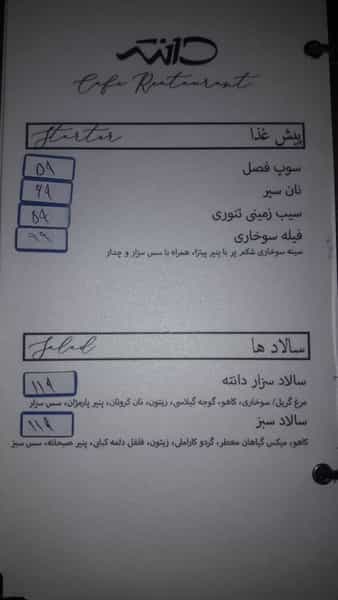 دانته
Cafe Restaurant
پیش غذا Starter
سوپ فصل ۵۹
نان سیر ۴۹
سیب زمینی تنوری ۵۹
فیله سوخاری ۹۹
سینه سوخاری شکم پر با پنیر پیتزا، همراه با سس سزار و چدار
سالاد ها Salad
سالاد سزار دانته ۱۱۹
مرغ گریل/ سوخاری، کاهو، گوجه گیلاسی، زیتون، نان کروتان، پنیر پارمزان، سس سزار
سالاد سبز ۱۱۹
کاهو، میکس گیاهان معطر، گردو کاراملی، زیتون، فلفل دلمه کبابی، پنیر صبحانه، سس سبز